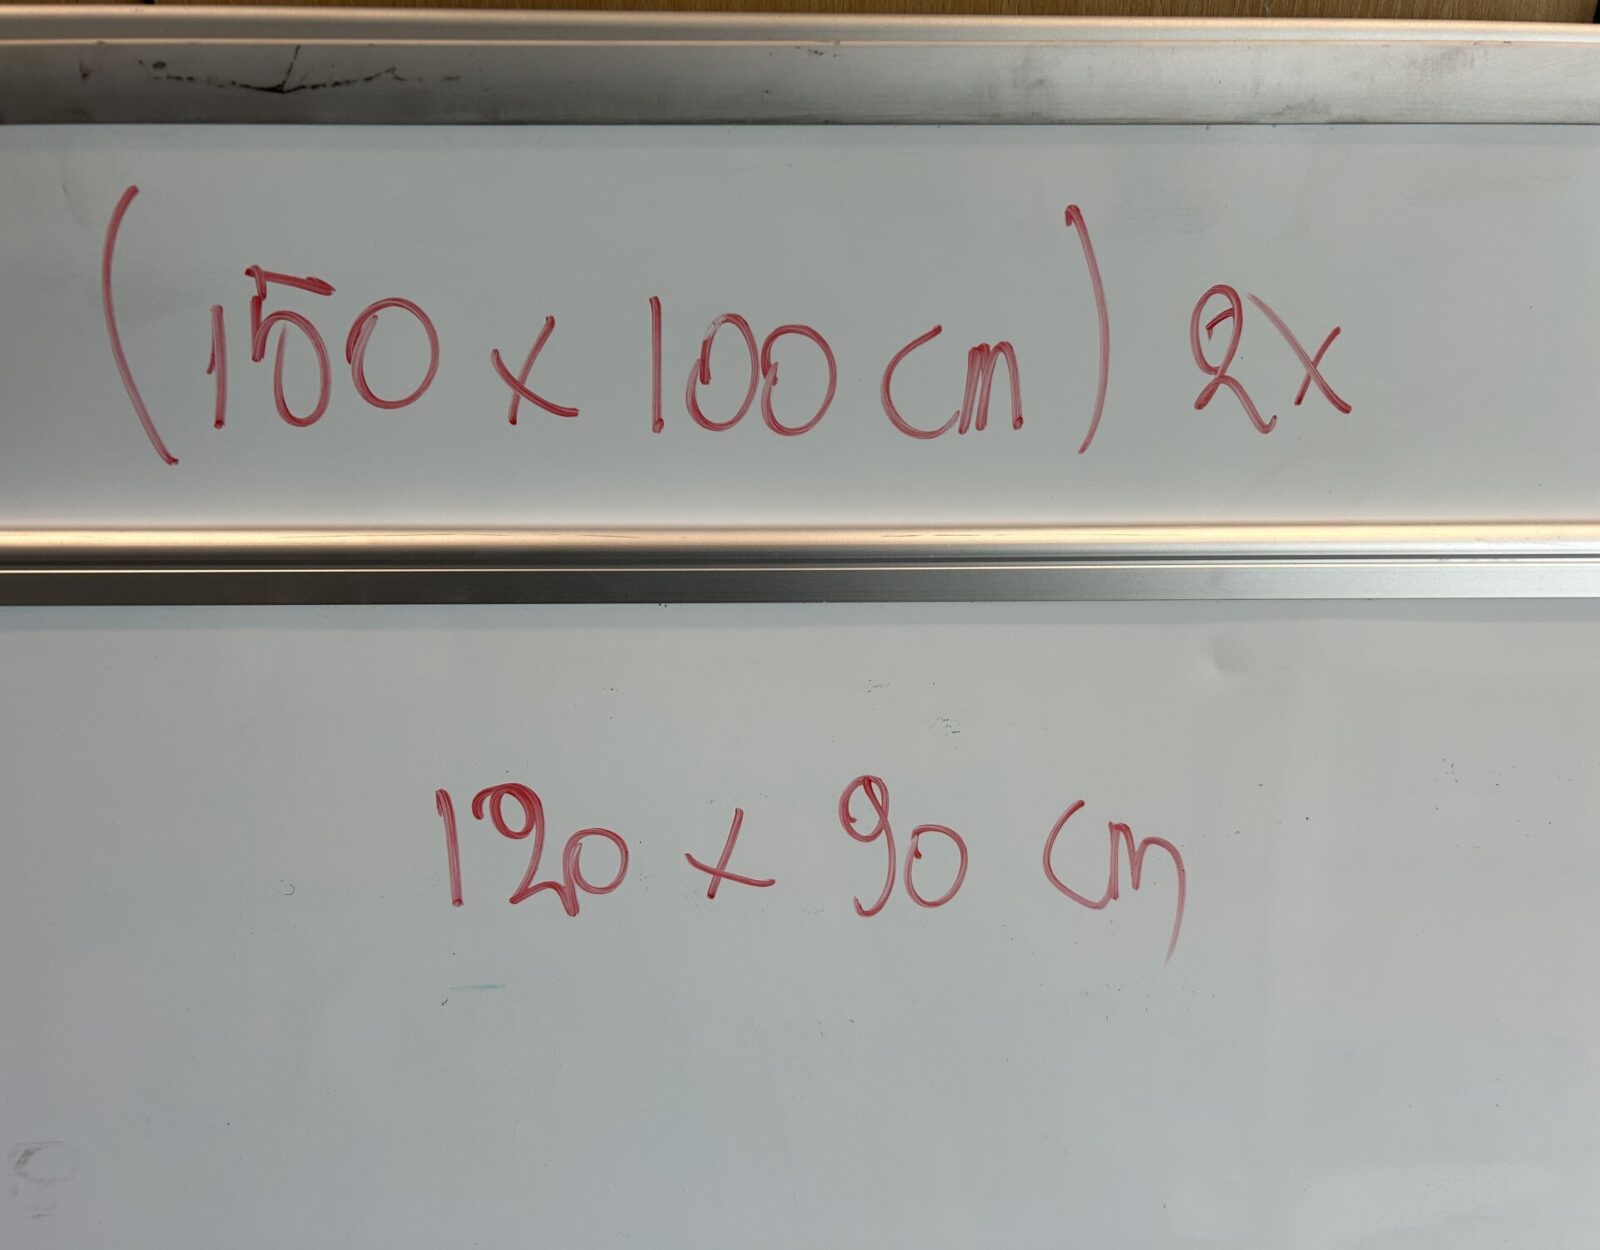 (150 x 100 cm) 2x
120 x 90 cm